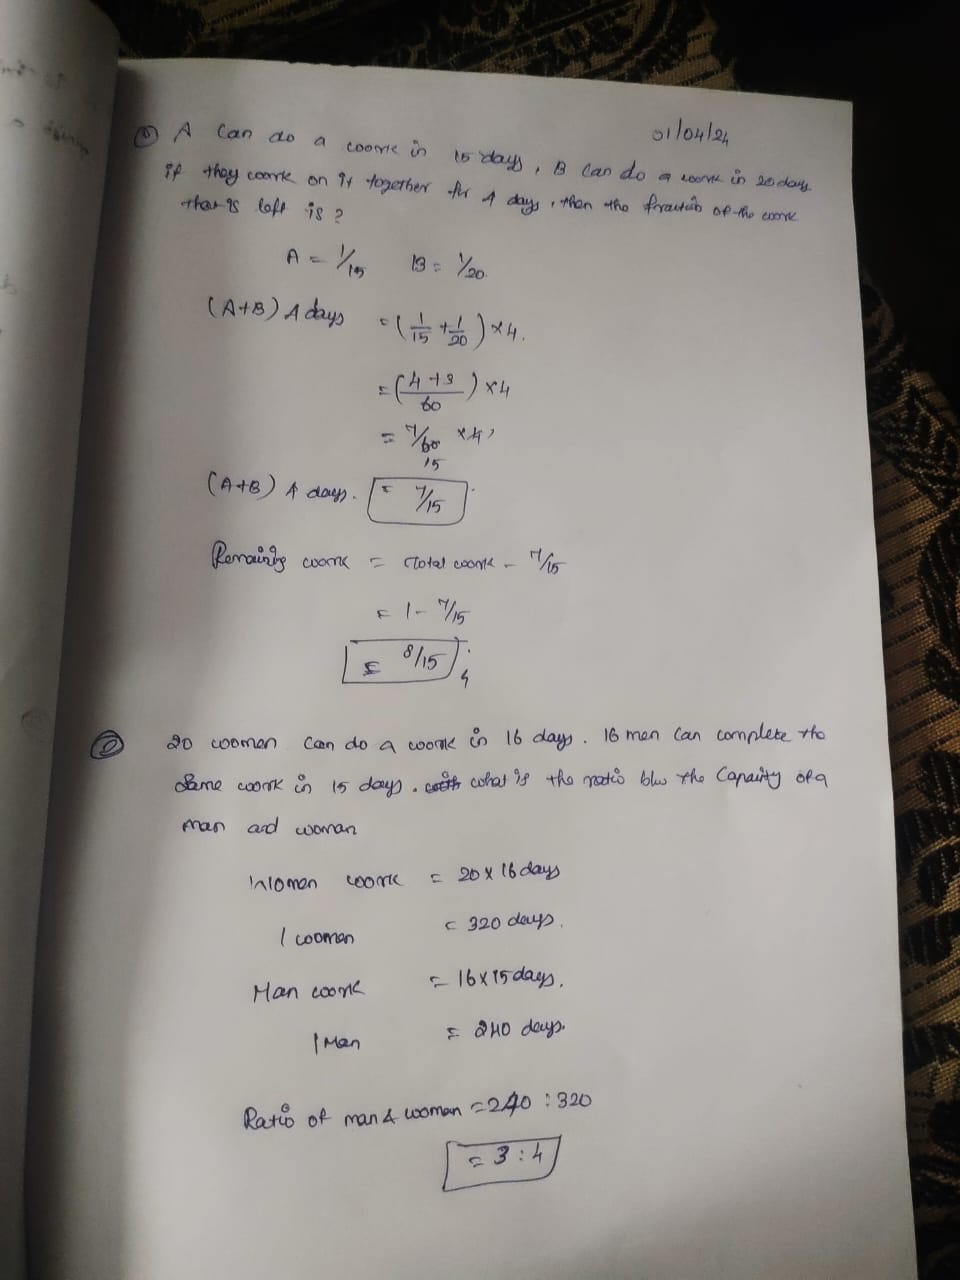 01/04/24
① A can do a work in 15 days, B can do a work in 20 days
if they work on it together for 4 days, then the fraction of the work
that is left is?
A = 1/15 B = 1/20
(A+B) 4 days = (1/15 + 1/20) × 4.
= (4+3/60) × 4
= 7/60 × 4
15
(A+B) 4 days. = 7/15
Remaining work = Total work - 7/15
= 1 - 7/15
= 8/15
② 20 women can do a work in 16 days. 16 men can complete the
same work in 15 days. what is the ratio b/w the capacity of a
man and woman
Women work = 20 × 16 days
1 woman = 320 days.
Man work = 16 × 15 days.
1 Man = 240 days.
Ratio of man & woman = 240 : 320
= 3 : 4